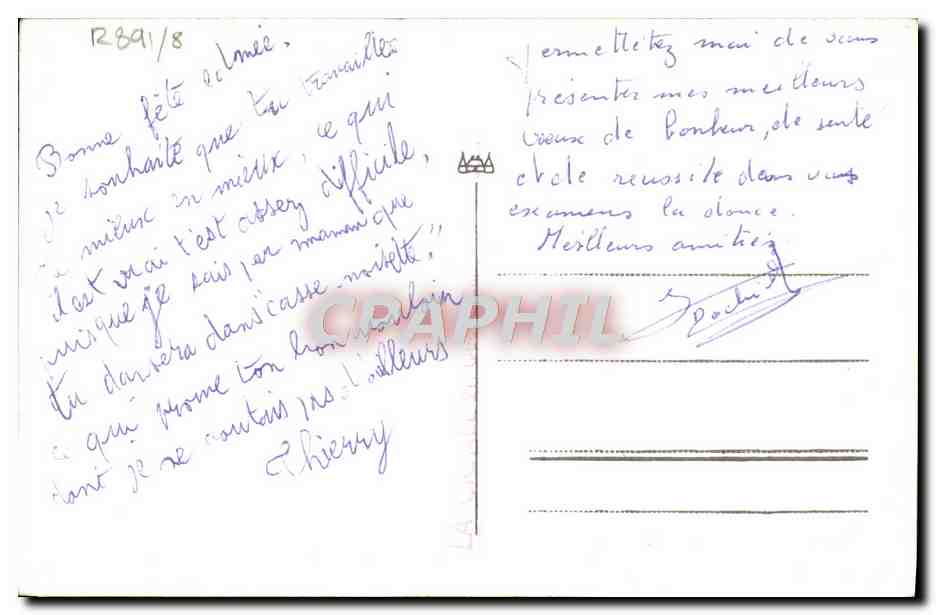 R891/8
Bonne fête
je souhaite que tu travailles
de mieux en mieux, ce qui
il est vrai t'est assez difficile,
puisque je sais par maman que
tu dansera dans "casse-noisette",
ce qui prouve ton bon vouloir
dont je ne doutais pas d'ailleurs
Thierry
Permettétez moi de vous
présenter mes meilleurs
voeux de bonheur, de santé
et de reussite dans vos
examens la dance.
Meilleurs amitiés
CPARPHIL